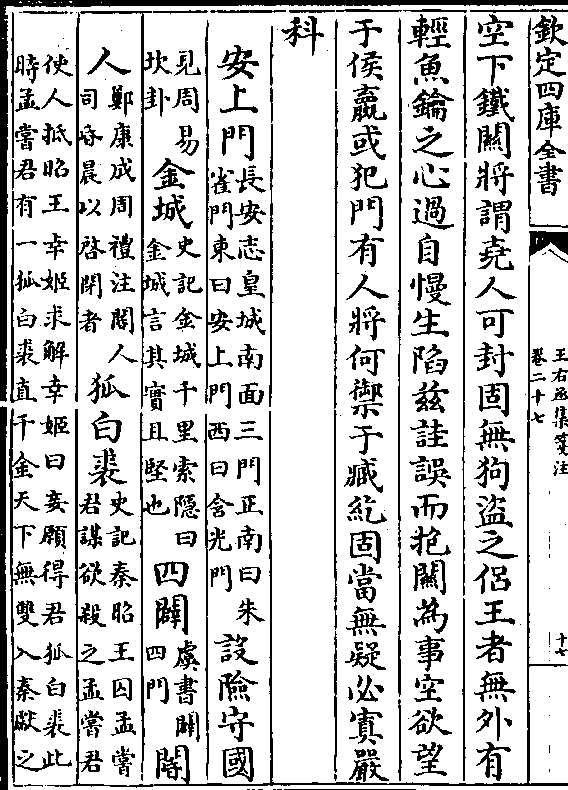 欽定四庫全書
王右丞集箋注
卷二十七
十七
空下鐵關將謂堯人可封固無狗盜之侶王者無外有
輕魚鑰之心過自慢生陷茲詿誤而抱關為事空欲望
于侯嬴或犯門有人將何禦于臧紇固當無疑必寘嚴
科
安上門長安志皇城南面三門正南曰朱雀門東曰安上門西曰含光門設險守國
見周易坎卦金城史記金城千里索隠曰金城言其實且堅也四闢虞書闢四門閽
人鄭康成周禮注閽人司昏晨以啓閉者狐白裘史記秦昭王囚孟嘗君謀欲殺之孟嘗君
使人抵昭王幸姬求解幸姬曰妾願得君狐白裘此
時孟嘗君有一狐白裘直千金天下無雙入秦獻之